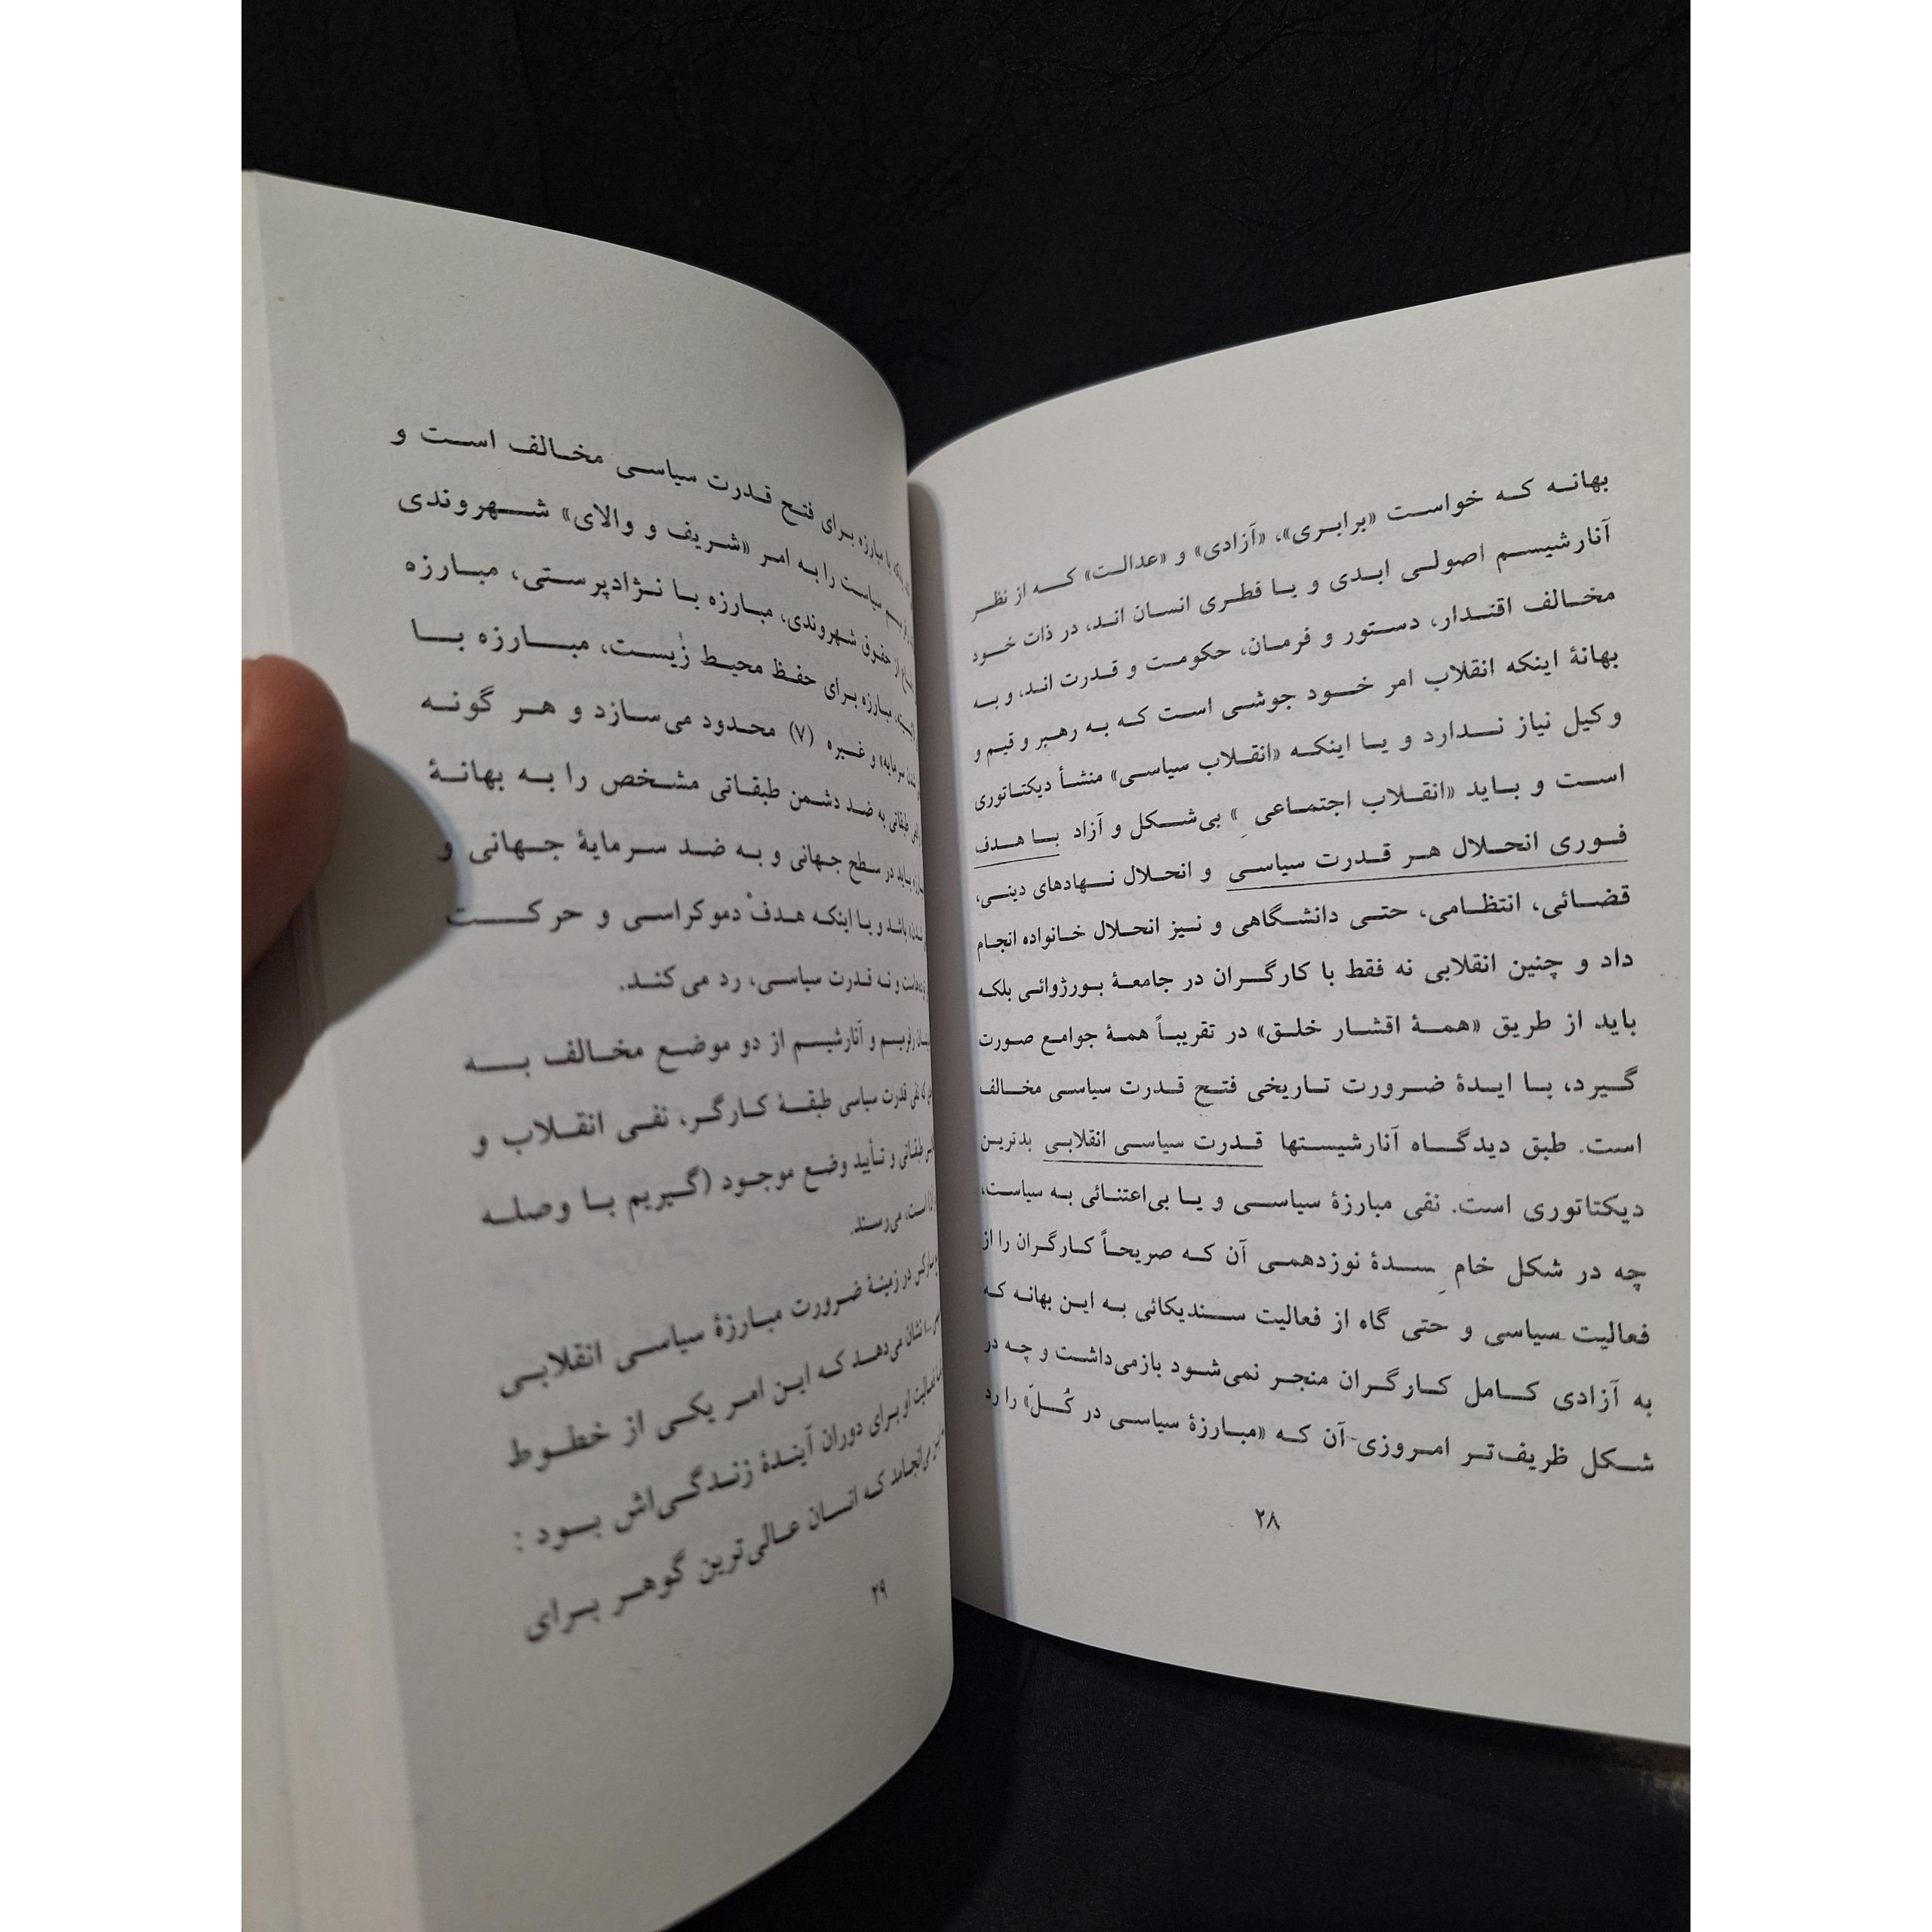 بهانه که خواست «برابری»، «آزادی» و «عدالت» که از نظر
آنارشیسم اصولی ابدی و یا فطری انسان اند، در ذات خود
مخالف اقتدار، دستور و فرمان، حکومت و قدرت اند، و به
بهانهٔ اینکه انقلاب امر خود جوشی است که به رهبر و قیم و
وکیل نیاز ندارد و یا اینکه «انقلاب سیاسی» منشأ دیکتاتوری
است و باید «انقلاب اجتماعی ِ» بی‌شکل و آزاد با هدف
فوری انحلال هر قدرت سیاسی و انحلال نهادهای دینی،
قضائی، انتظامی، حتی دانشگاهی و نیز انحلال خانواده انجام
داد و چنین انقلابی نه فقط با کارگران در جامعهٔ بورژوائی بلکه
باید از طریق «همهٔ اقشار خلق» در تقریباً همهٔ جوامع صورت
گیرد، با ایدهٔ ضرورت تاریخی فتح قدرت سیاسی مخالف
است. طبق دیدگاه آنارشیستها قدرت سیاسی انقلابی بدترین
دیکتاتوری است. نفی مبارزهٔ سیاسی و یا بی‌اعتنائی به سیاست،
چه در شکل خام ِ سدهٔ نوزدهمی آن که صریحاً کارگران را از
فعالیت سیاسی و حتی گاه از فعالیت سندیکائی به این بهانه که
به آزادی کامل کارگران منجر نمی‌شود بازمی‌داشت و چه در
شکل ظریف‌تر امروزی آن که «مبارزهٔ سیاسی در کُلّ» را رد
۲۸
با مبارزه برای فتح قدرت سیاسی مخالف است و
سیاست را به امر «شریف و والای» شهروندی
از حقوق شهروندی، مبارزه با نژادپرستی، مبارزه
مبارزه برای حفظ محیط زیست، مبارزه با
سرمایه» و غیره (۷) محدود می‌سازد و هر گونه
طبقاتی به ضد دشمن طبقاتی مشخص را به بهانهٔ
باید در سطح جهانی و به ضد سرمایهٔ جهانی و
باشد و یا اینکه هدفْ دموکراسی و حرکت
است و نه قدرت سیاسی، رد می‌کند.
رفرمیسم و آنارشیسم از دو موضع مخالف به
نفی قدرت سیاسی طبقهٔ کارگر، نفی انقلاب و
طبقاتی و تأیید وضع موجود (گیریم با وصله
است، می‌رسند.
مارکس در زمینهٔ ضرورت مبارزهٔ سیاسی انقلابی
نشان می‌دهد که این امر یکی از خطوط
فعالیت او برای دوران آیندهٔ زندگی‌اش بود :
می‌انجامد که انسان عالی‌ترین گوهر برای
۲۹